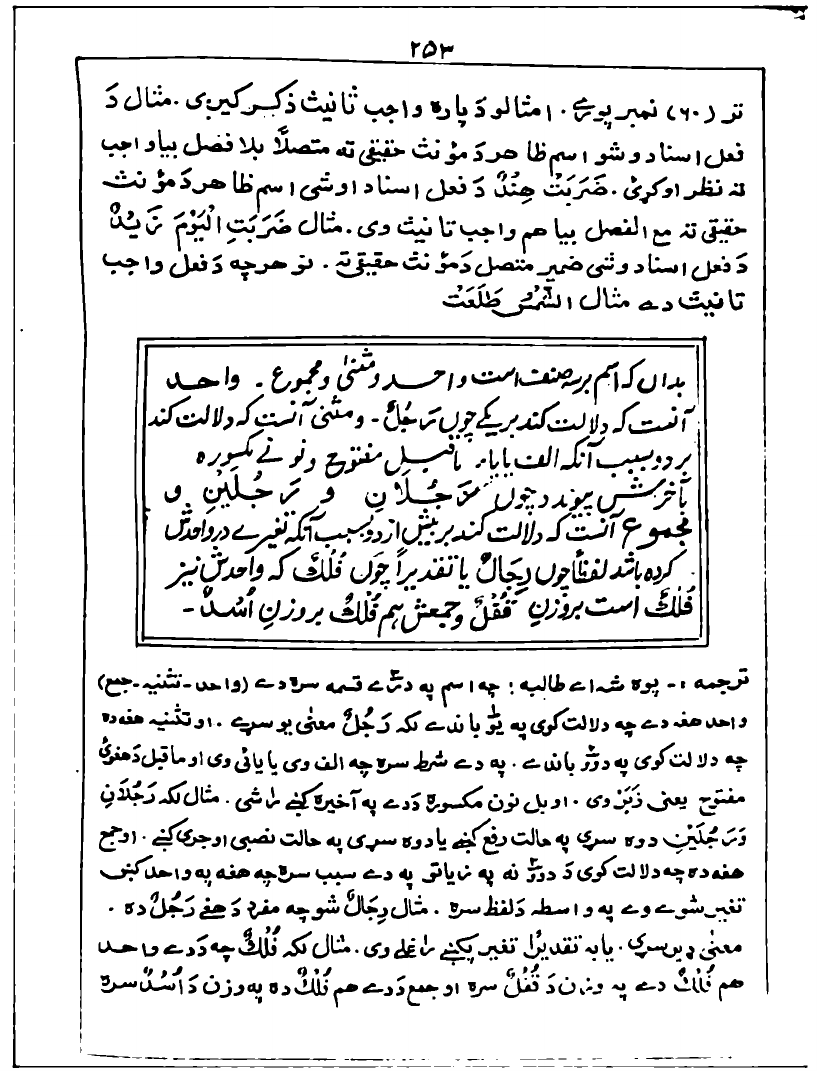 ۲۵۳
تر (۶۰) نمبر پورے. امثالو دَ پارہ واجب تانیث ذکر کیږی. مثال دَ
فعل اسناد وشو اسم ظاهر دَ مؤنث حقیقی ته متصلاً بلا فصل بیا واجب
ته نظر اوکړئ. ضَرَبَتْ هِنْدٌ دَ فعل اسناد اوشی اسم ظاهر دَ مؤنث
حقیقی ته مع الفصل بیا هم واجب تانیث وی. مثال ضَرَبَتِ الْیَوْمَ
دَ فعل اسناد وشی ضمیر متصل دَ مؤنث حقیقی ته. نو هرچه دَ فعل واجب
تانیث دے مثال الشَّمْسُ طَلَعَتْ
بداں کہ اسم بر سہ صنف است واحد و مثنیٰ و مجموع. واحد
آنست کہ دلالت کند بر یکے چوں رَجُلٌ - و مثنی آنست کہ دلالت کند
بر دو بسبب آنکہ الف یا یاء ماقبل مفتوح و نونے مکسورہ
بآخرش پیوندد چوں رَجُلَانِ و رَجُلَیْنِ و
مجموع آنست کہ دلالت کند بر بیش از دو بسبب آنکہ تغیرے در واحدش
کردہ باشد لفظاً چوں رِجَالٌ یا تقدیراً چوں فُلْكٌ کہ واحدش نیز
فُلْكٌ است بروزنِ قُفْلٌ و جمعش ہم فُلْكٌ بروزنِ اُسُدٌ -
ترجمه :- پوه شه اے طالبه! چه اسم په درے قسمه سره دے (واحد - تثنیه - جمع)
واحد هغه دے چه دلالت کوی په یو باندے لکه رَجُلٌ معنیٰ یو سړے. او تثنیه هغه ده
چه دلالت کوی په دوو باندے. په دے شرط سره چه الف وی یا یائی وی او ماقبل دَ هغوئ
مفتوح یعنی زَبَرْ وی. او بل نون مکسوره دَ دے په آخیره کښے راشی. مثال لکه رَجُلَانِ
وَرَجُلَیْنِ دوه سړی په حالت رفع کښے یا دوه سړی په حالت نصبی او جری کښے. او جمع
هغه ده چه دلالت کوی دَ دوو نه په زیاتی په دے سبب سره چه هغه په واحد کښ
تغیر شوے وے په واسطه دَ لفظ سره. مثال رِجَالٌ شو چه مفرد دَ هغے رَجُلٌ ده.
معنیٰ ډیر سړی. یا په تقدیرًا تغیر پکښے راغلے وی. مثال لکه فُلْكٌ چه دَ دے واحد
هم فُلْكٌ دے په وزن دَ قُفْلٌ سره او جمع دَ دے هم فُلْكٌ ده په وزن دَ اُسُدٌ سره